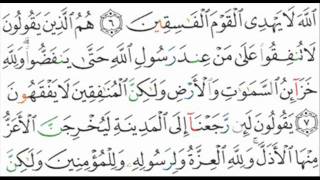 اللَّهَ لَا يَهْدِى الْقَوْمَ الْفَٰسِقِينَ ٦ هُمُ الَّذِينَ يَقُولُونَ
لَا تُنفِقُوا۟ عَلَىٰ مَنْ عِندَ رَسُولِ اللَّهِ حَتَّىٰ يَنفَضُّوا۟ وَلِلَّهِ
خَزَآئِنُ السَّمَٰوَٰتِ وَالْأَرْضِ وَلَٰكِنَّ الْمُنَٰفِقِينَ لَا يَفْقَهُونَ
٧ يَقُولُونَ لَئِن رَّجَعْنَآ إِلَى الْمَدِينَةِ لَيُخْرِجَنَّ الْأَعَزُّ
مِنْهَا الْأَذَلَّ وَلِلَّهِ الْعِزَّةُ وَلِرَسُولِهِۦ وَلِلْمُؤْمِنِينَ وَلَٰكِنَّ